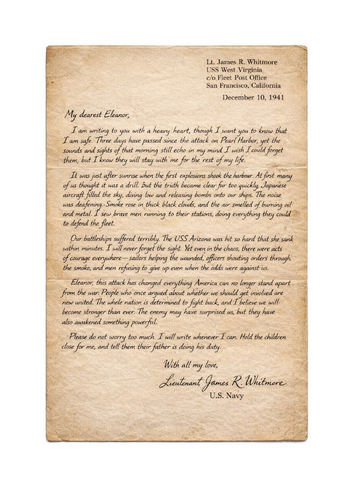 Lt. James R. Whitmore
USS West Virginia
c/o Fleet Post Office
San Francisco, California
December 10, 1941
My dearest Eleanor,
I am writing to you with a heavy heart, though I want you to know that
I am safe. Three days have passed since the attack on Pearl Harbor, yet the
sounds and sights of that morning still echo in my mind. I wish I could forget
them, but I know they will stay with me for the rest of my life.
It was just after sunrise when the first explosions shook the harbour. At first many
of us thought it was a drill, but the truth became clear far too quickly. Japanese
aircraft filled the sky, diving low and releasing bombs onto our ships. The noise
was deafening. Smoke rose in thick black clouds, and the air smelled of burning oil
and metal. I saw brave men running to their stations, doing everything they could
to defend the fleet.
Our battleships suffered terribly. The USS Arizona was hit so hard that she sank
within minutes. I will never forget the sight. Yet even in the chaos, there were acts
of courage everywhere— sailors helping the wounded, officers shouting orders through
the smoke, and men refusing to give up even when the odds were against us.
Eleanor, this attack has changed everything. America can no longer stand apart
from the war. People who once argued about whether we should get involved are
now united. The whole nation is determined to fight back, and I believe we will
become stronger than ever. The enemy may have surprised us, but they have
also awakened something powerful.
Please do not worry too much. I will write whenever I can. Hold the children
close for me, and tell them their father is doing his duty.
With all my love,
Lieutenant James R. Whitmore
U.S. Navy